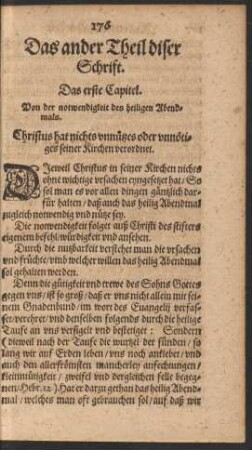 176
Das ander Theil diser
Schrifft.
Das erste Capitel.
Von der notwendigkeit des heiligen Abend-
mals.
Christus hat nichts vnnützes oder vnnöti-
ges seiner Kirchen verordnet.
DJeweil Christus in seiner Kirchen nichts
ohne wichtige vrsachen eyngesetzet hat / So
sol man es vor allen dingen gäntzlich dar-
für halten / daß auch das heilig Abendtmal
zugleich notwendig vnd nütze sey.
Die notwendigkeit folget auß Christi des stifters
eigenem befehl / würdigkeit vnd ansehen.
Durch die nutzbarkeit verstehet man die vrsachen
vnd früchte / vmb welcher willen das heilig Abendmal
sol gehalten werden.
Denn die gütigkeit vnd trewe des Sohns Gottes
gegen vns / ist so groß / daß er vns nicht allein mit sei-
nem Gnadenbund / im wort des Euangelij verfas-
set / verehret / vnd denselben folgends durch die heilige
Tauffe an vns versigelt vnd bestetiget : Sondern
( dieweil nach der Tauffe die wurtzel der sünden / so
lang wir auff Erden leben / vns noch anklebet / vnd
auch den allerfrömsten mancherley anfechtungen /
kleinmütigkeit / zweifel vnd dergleichen felle begeg-
nen / Hebr. 12. ) Hat er darzu gethan das heilig Abend-
mal / welches man oft gebrauchen sol / auf daß wir